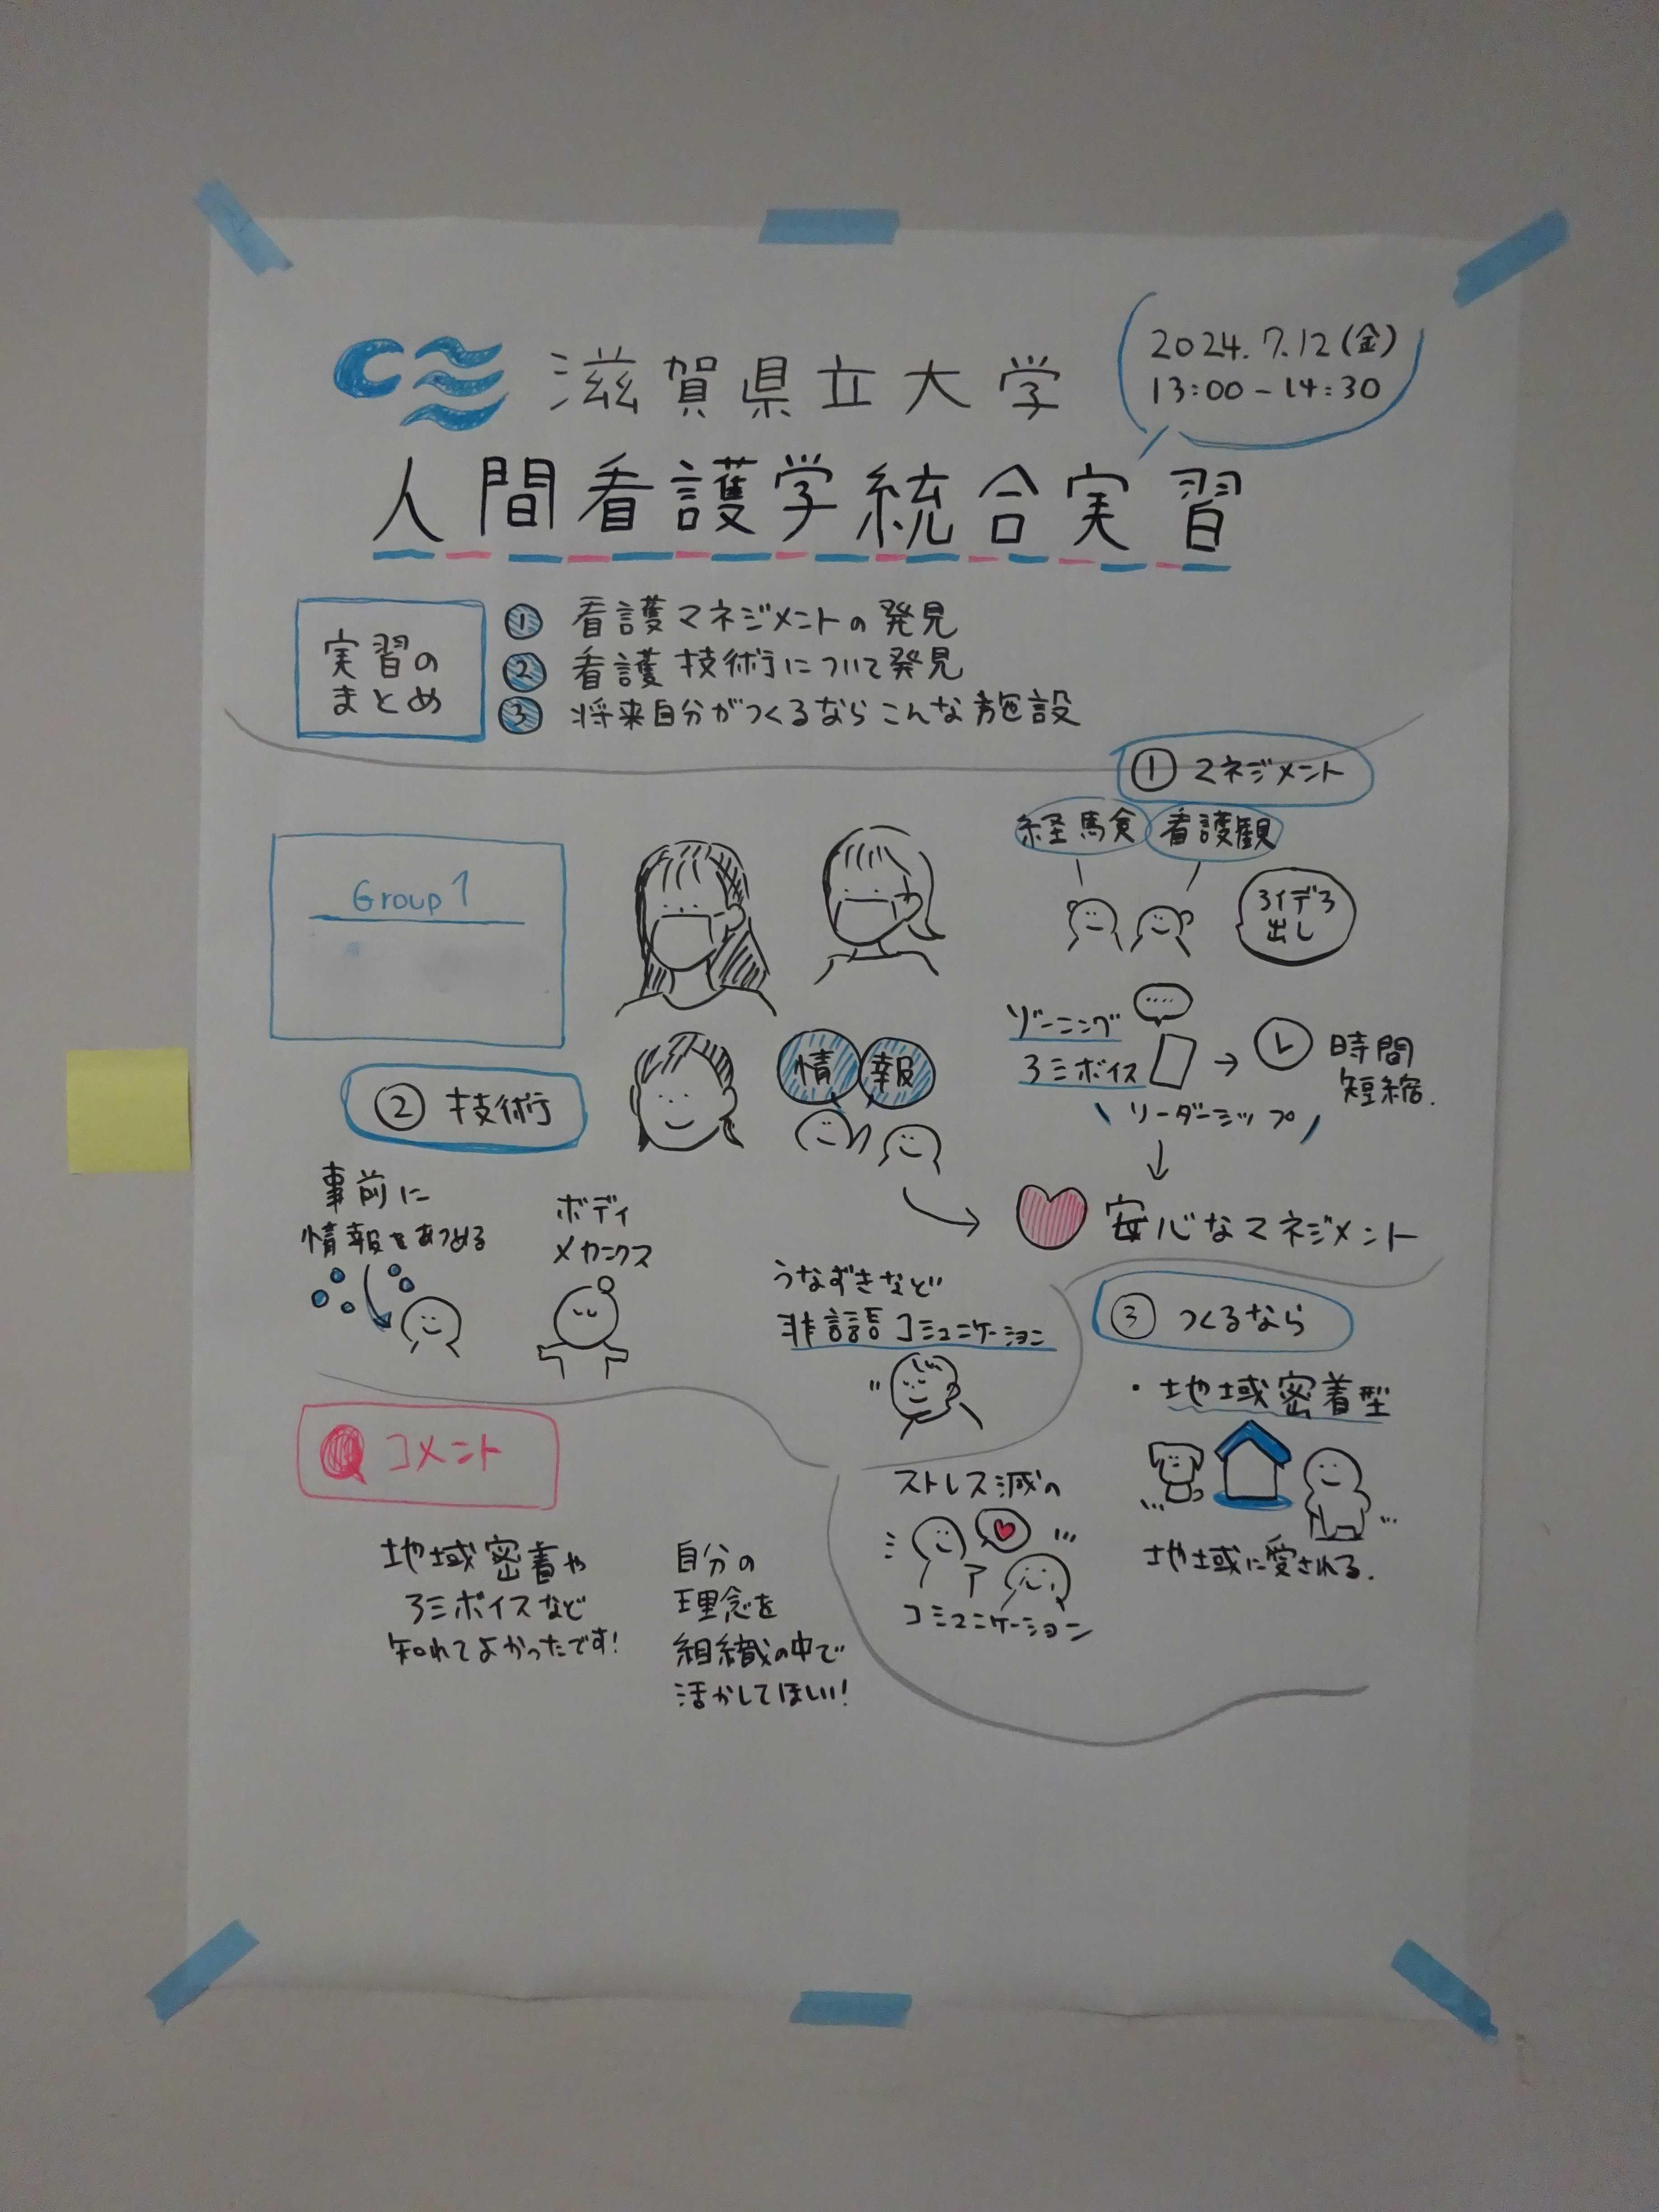 滋賀県立大学
2024.7.12(金)
13:00-14:30
人間看護学統合実習
実習の
まとめ
① 看護マネジメントの発見
② 看護技術について発見
③ 将来自分がつくるならこんな施設
① マネジメント
経験 看護観
アイデア
出し
Group 1
ゾーニング
アミボイス
時間
短縮.
リーダーシップ
情報
安心なマネジメント
② 技術
事前に
情報をあつめる
ボディ
メカニクス
うなずきなど
非言語コミュニケーション
③ つくるなら
・地域密着型
地域に愛される.
ストレス減の
コミュニケーション
コメント
地域密着や
アミボイスなど
知れてよかったです!
自分の
理念を
組織の中で
活かしてほしい!